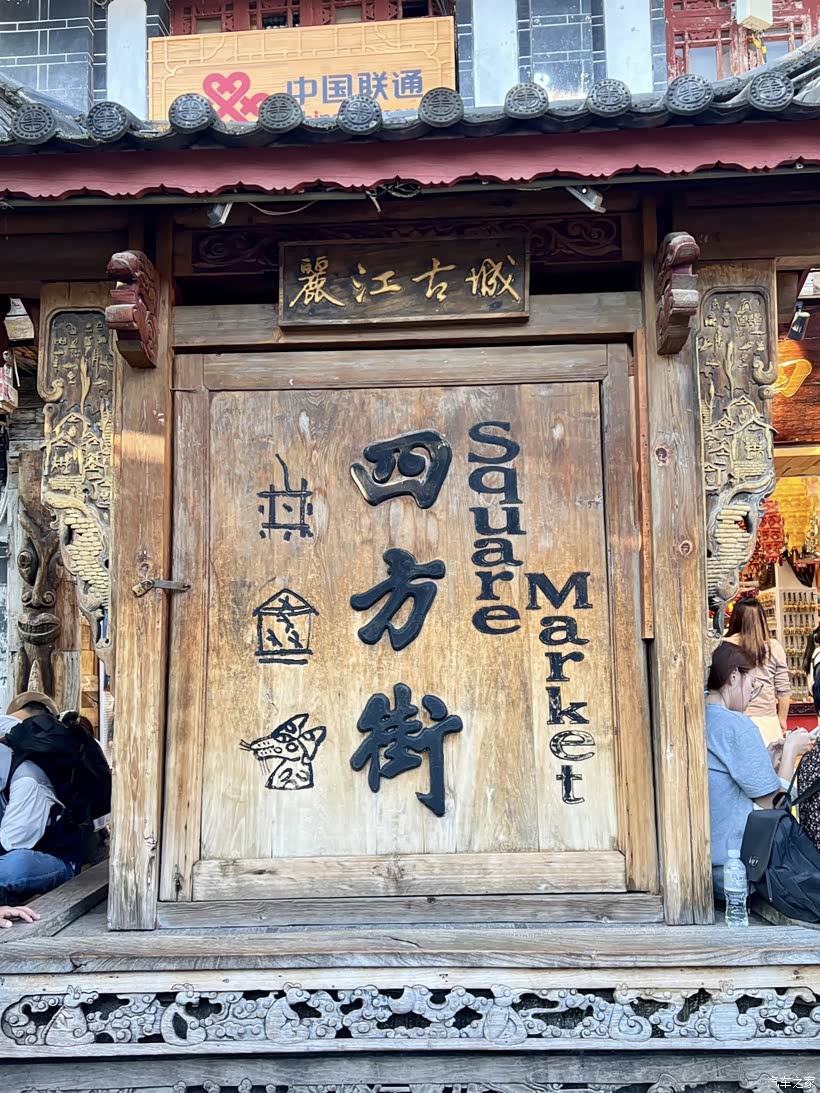 中国联通
麗江古城
四方街
Square
Market
汽车之家